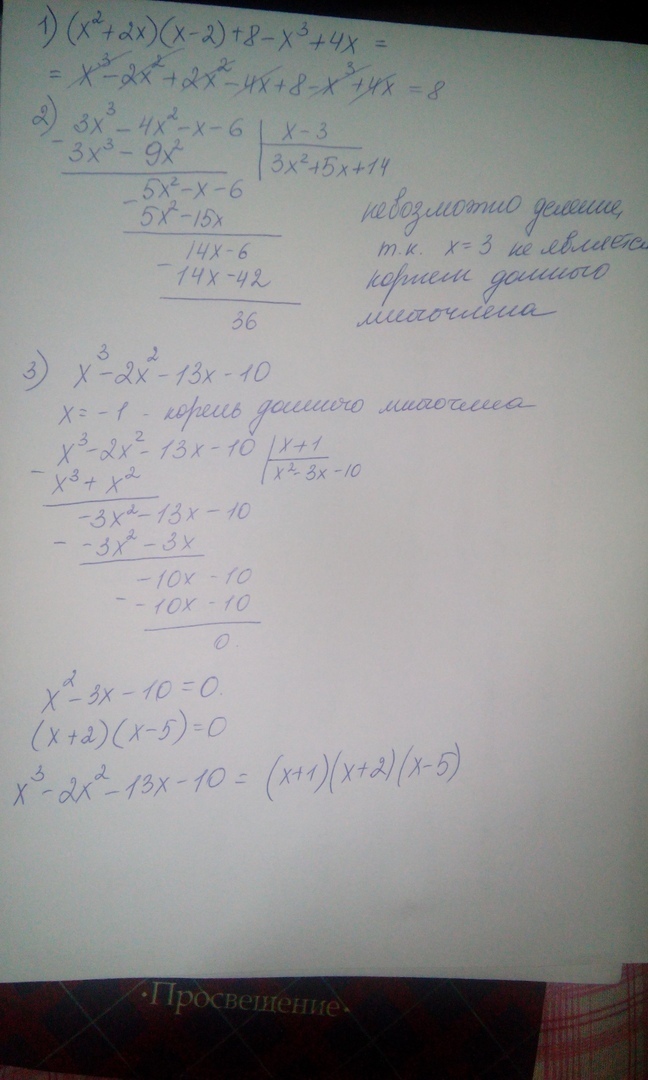 1) (x²+2x)(x-2)+8-x³+4x =
= x³-2x²+2x²-4x+8-x³+4x = 8
2) 3x³-4x²-x-6 | x-3
- 3x³-9x² 3x²+5x+14
5x²-x-6
- 5x²-15x
14x-6
- 14x-42
36
невозможно деление,
т.к. x=3 не является
корнем данного
многочлена
3) x³-2x²-13x-10
x=-1 - корень данного многочлена
x³-2x²-13x-10 | x+1
- x³+x² x²-3x-10
-3x²-13x-10
- -3x²-3x
-10x-10
- -10x-10
0.
x²-3x-10=0.
(x+2)(x-5)=0
x³-2x²-13x-10= (x+1)(x+2)(x-5)
·Просвещение·